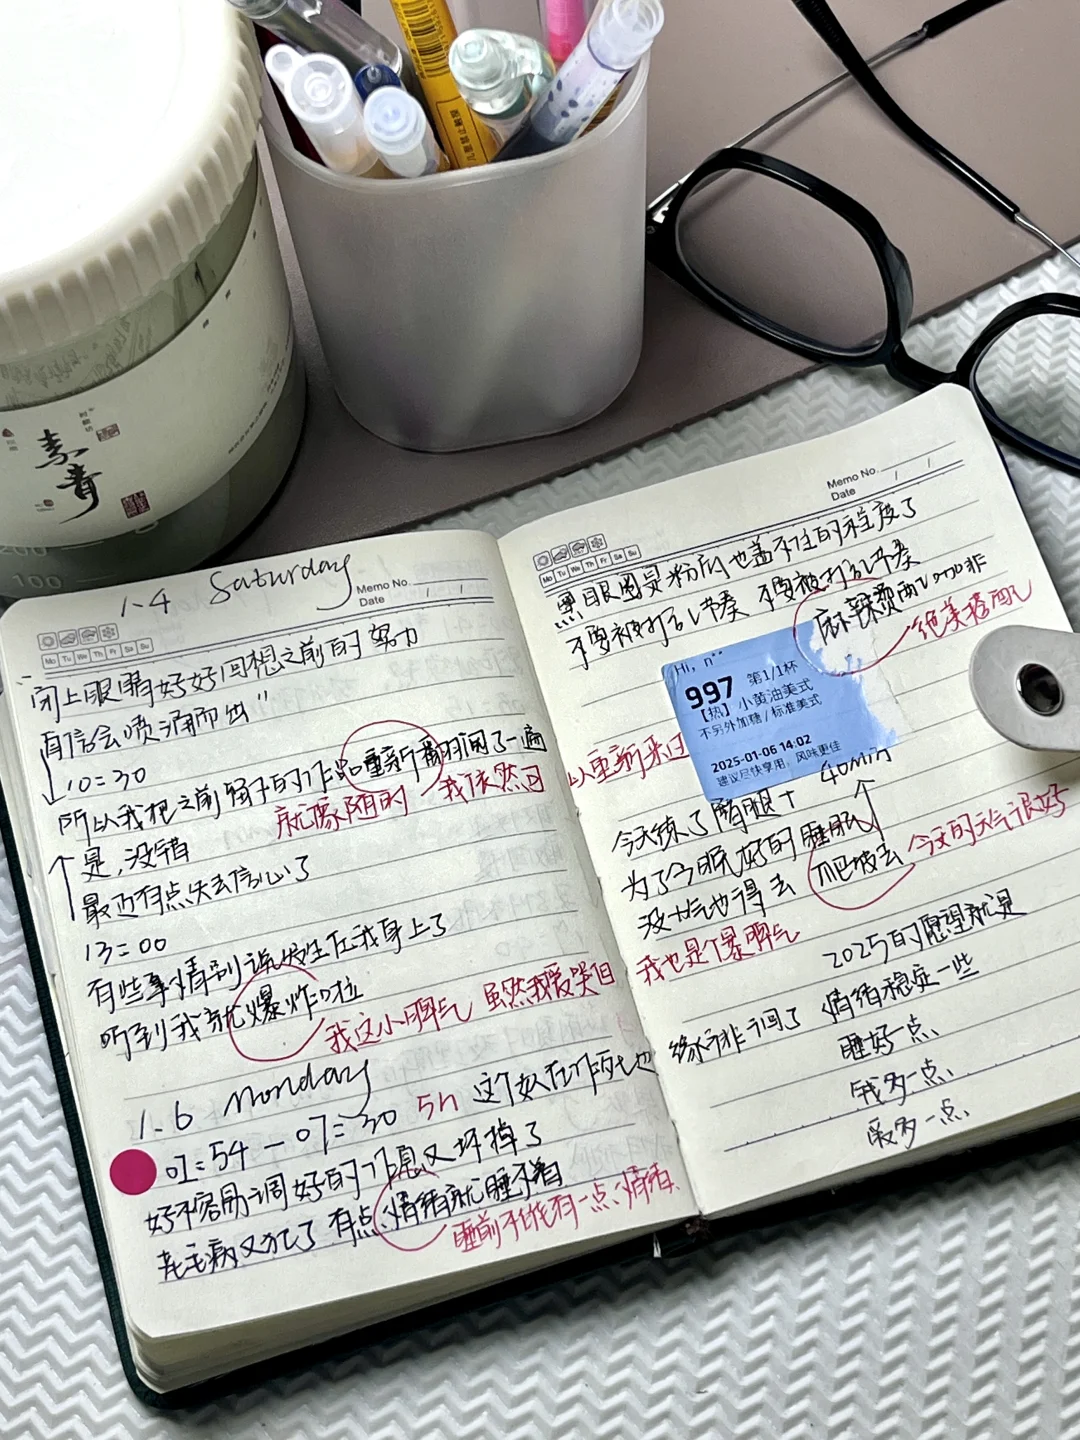 素青
100
1-4 Saturday
Memo No.
Date / /
Mo Tu We Th Fr Sa Su
闭上眼睛好好回想之前的努力
自信会喷涌而出"
10:30
重新翻阅了一遍
就像随时
我依然可
以重新来过
是,没错
最近有点失去信心了
13:00
有些事情别说发生在我身上了
听到我就爆炸啦
我这小脾气 虽然我爱哭但
我也是个暴脾气
1.6 monday
01:54 - 07:30 5h
好不容易调好的作息又坏掉了
老毛病又犯了 有点情绪就睡不着
睡前不能有一点情绪
Memo No.
Date / /
Mo Tu We Th Fr Sa Su
黑眼圈是粉底也盖不住的程度了
不要被打乱节奏 不要被打乱节奏
麻辣烫
绝美搭配
Hi, n**
997 第1/1杯
【热】小黄油美式
不另外加糖/标准美式
2025-01-06 14:02
建议尽快享用,风味更佳
40min
今天练了臀腿+
为了今晚好的睡眠
没力气也得去
爬坡去
今天的天气很好
2025的愿望就是
情绪稳定一些
睡好一点
钱多一点
爱多一点